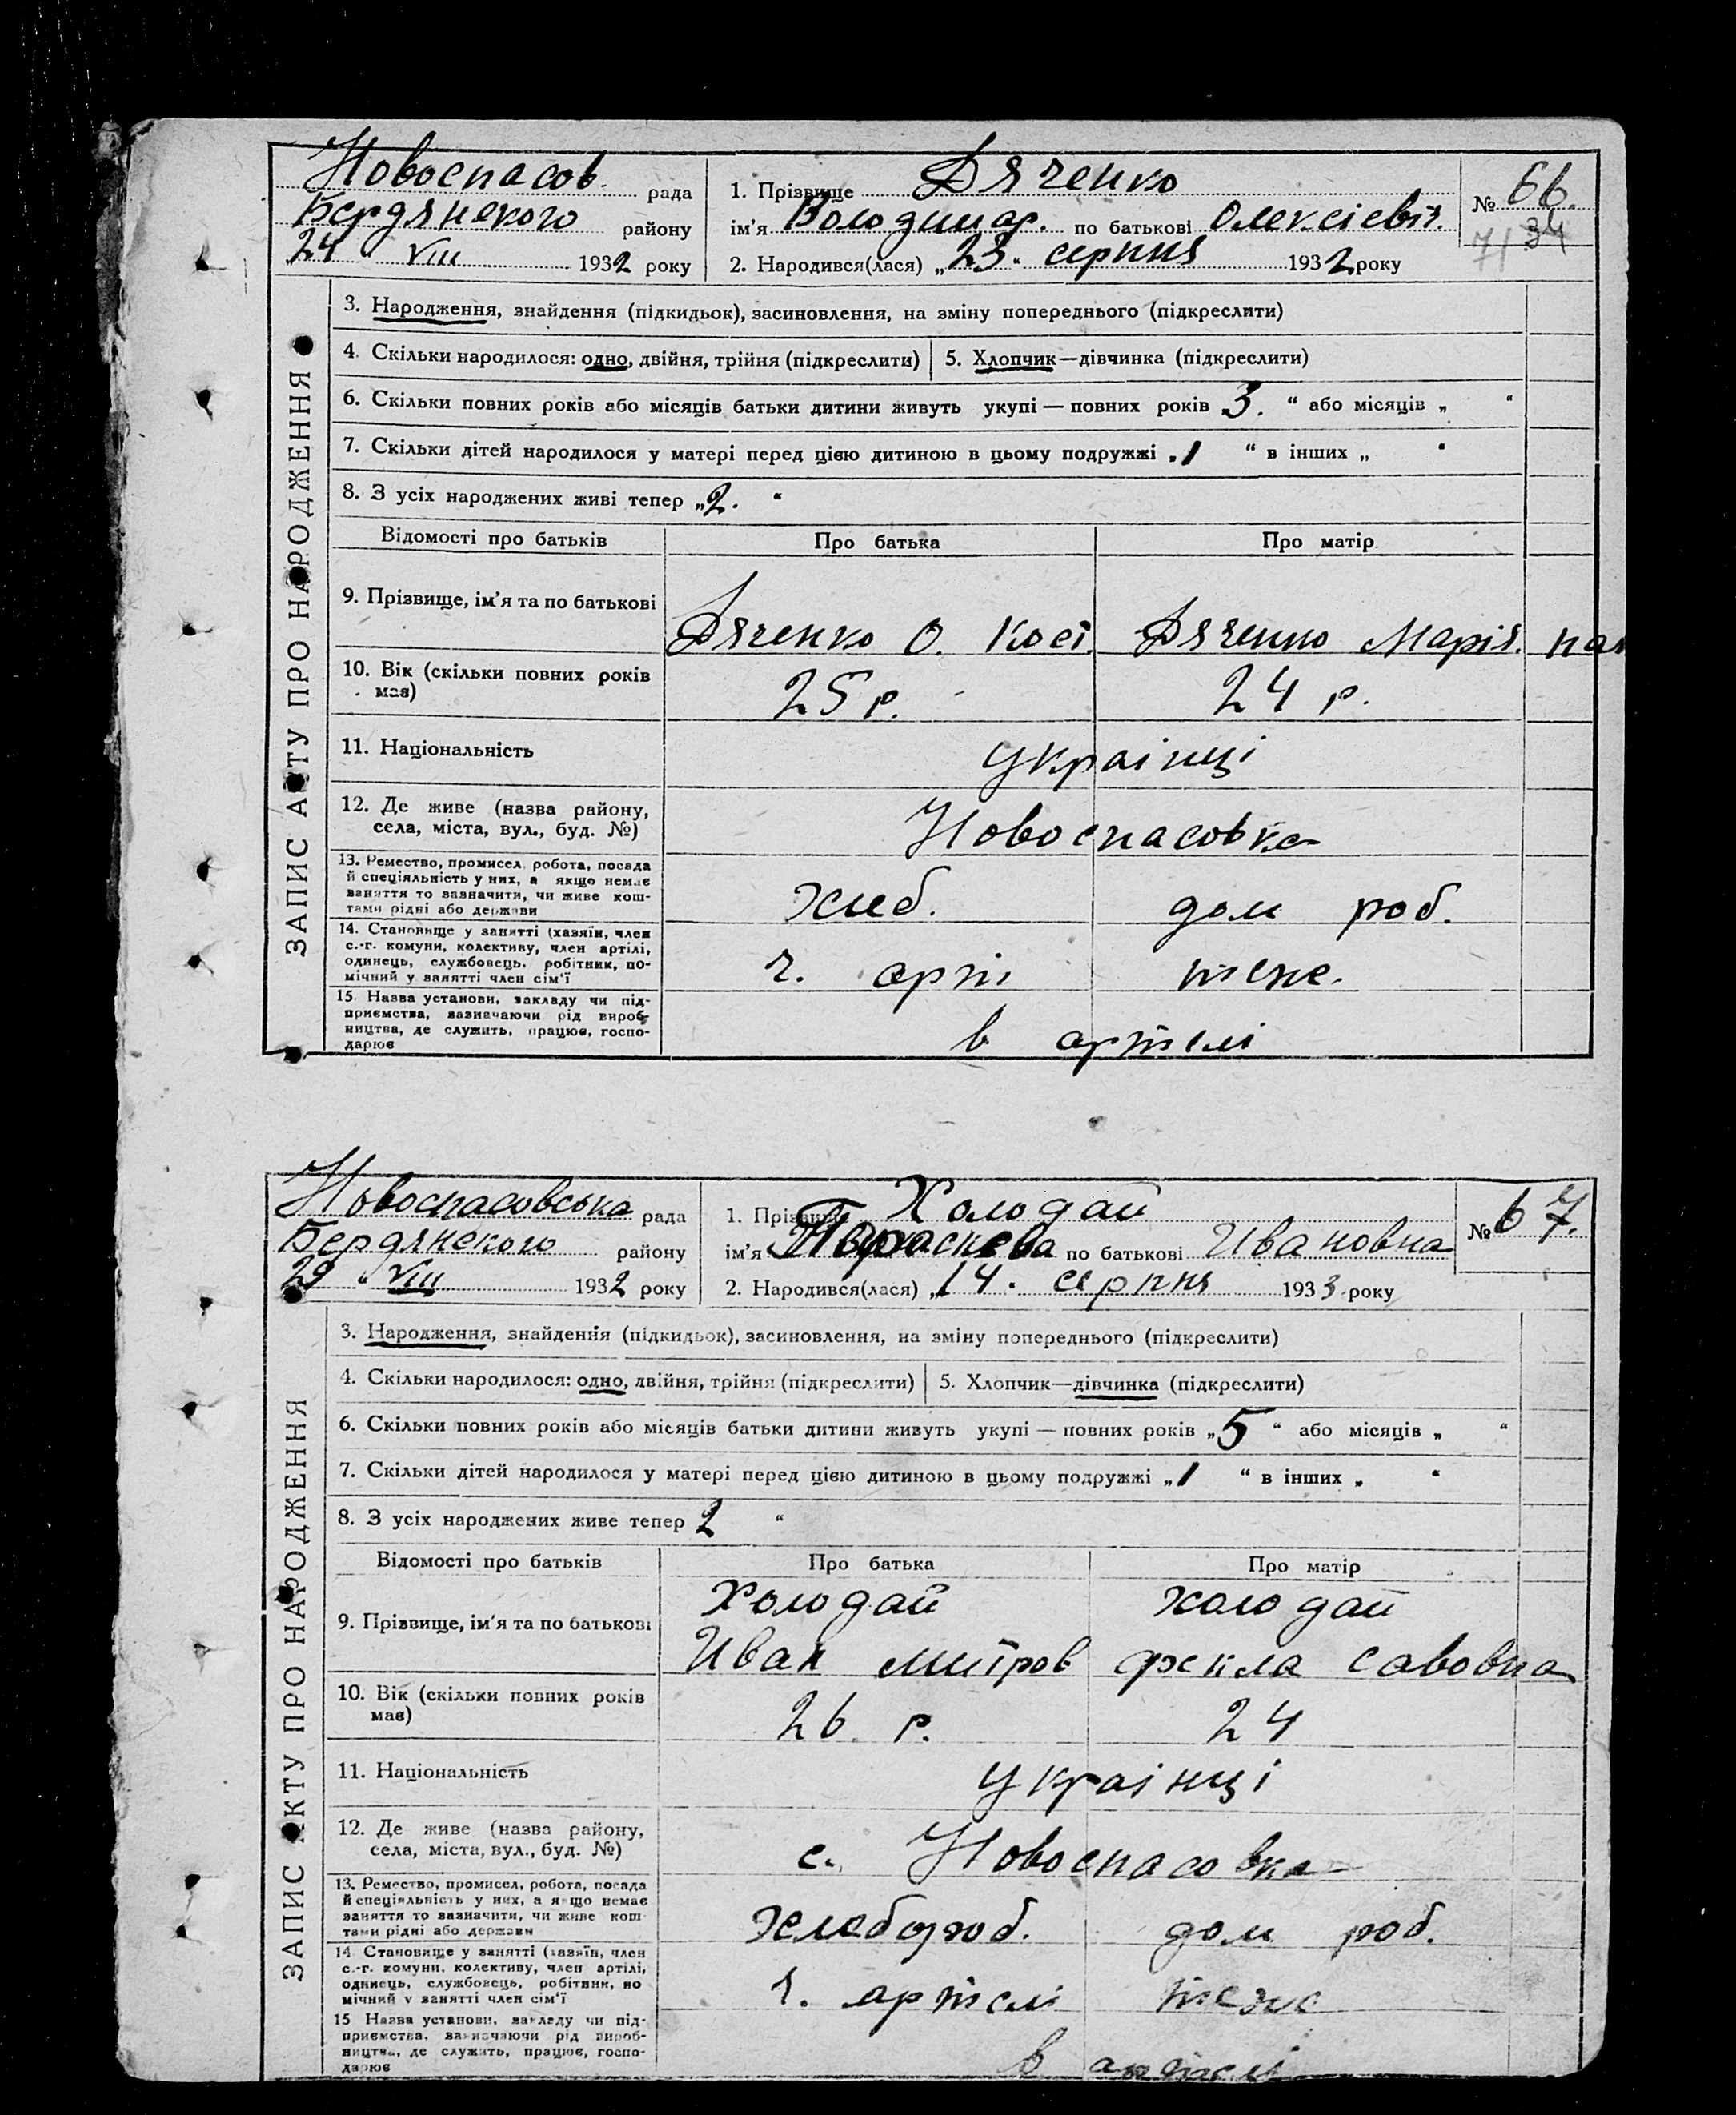 Новоспасов. рада
Бердянского району
24 " VIII 1932 року
1. Прізвище Дяченко
ім'я Володимар. по батькові Олексієвіч.
2. Народився(лася) „23" серпня 1932 року
№ 66.
71 34
ЗАПИС АКТУ ПРО НАРОДЖЕННЯ
3. Народження, знайдення (підкидьок), засиновлення, на зміну попереднього (підкреслити)
4. Скільки народилося: одно, двійня, трійня (підкреслити) 5. Хлопчик—дівчинка (підкреслити)
6. Скільки повних років або місяців батьки дитини живуть укупі — повних років „3." або місяців „ "
7. Скільки дітей народилося у матері перед цією дитиною в цьому подружжі „1 " в інших „ "
8. З усіх народжених живі тепер „2. "
Відомості про батьків Про батька Про матір
9. Прізвище, ім'я та по батькові
Дяченко О. Кост. Дяченко Марія.
10. Вік (скільки повних років
має)
25 р. 24 р.
11. Національність українці
12. Де живе (назва району,
села, міста, вул., буд. №)
Новоспасовка
13. Ремество, промисел, робота, посада
й спеціяльність у них, а якщо немає
заняття то зазначити, чи живе кош-
тами рідні або держави
хлеб. дом роб.
14. Становище у занятті (хазяїн, член
с.-г. комуни, колективу, член артілі,
одинець, службовець, робітник, по-
мічний у занятті член сім'ї
ч. арт теже.
15. Назва установи, закладу чи під-
приємства, зазначаючи рід вироб-
ництва, де служить, працює, госпо-
дарює
в артелі
Новоспасовська рада
Бердянского району
29 " VIII 1932 року
1. Прізвище Холодай
ім'я Параскева по батькові Ивановна
2. Народився(лася) „14. серпня 1933 року
№ 67.
ЗАПИС АКТУ ПРО НАРОДЖЕННЯ
3. Народження, знайдення (підкидьок), засиновлення, на зміну попереднього (підкреслити)
4. Скільки народилося: одно, двійня, трійня (підкреслити) 5. Хлопчик—дівчинка (підкреслити)
6. Скільки повних років або місяців батьки дитини живуть укупі — повних років „5 " або місяців „ "
7. Скільки дітей народилося у матері перед цією дитиною в цьому подружжі „1 " в інших „ "
8. З усіх народжених живе тепер 2 "
Відомості про батьків Про батька Про матір
Холодай холодай
9. Прізвище, ім'я та по батькові
Иван митров фекла савовна
10. Вік (скільки повних років
має)
26. р. 24
11. Національність українці
12. Де живе (назва району,
села, міста, вул., буд. №)
с. Новоспасовка
13. Ремество, промисел, робота, посада
й спеціяльність у них, а якщо немає
заняття то зазначити, чи живе кош-
тами рідні або держави
хлебороб. дом роб.
14 Становище у занятті (хазяїн, член
с.-г. комуни, колективу, член артілі,
одинець, службовець, робітник, по
мічний у занятті член сім'ї
ч. артелі теже
15 Назва установи, закладу чи під-
приємства, зазначаючи рід вироб-
ництва, де служить, працює, госпо-
дарює
в артелі